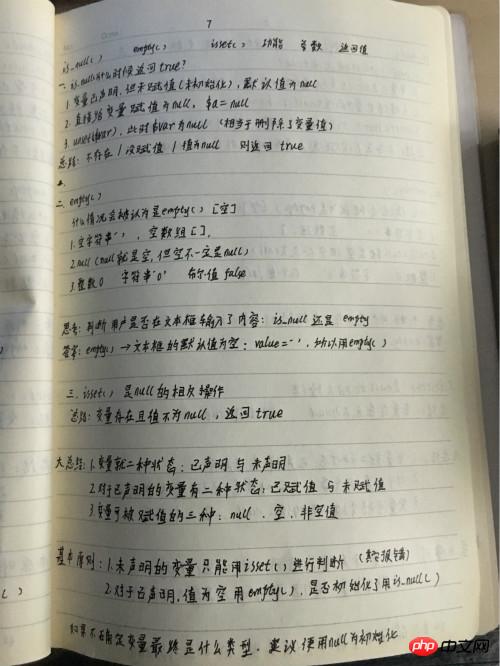 7
is_null() empty() isset() 功能 参数 返回值
一. is_null()什么时候返回true?
1. 变量已声明,但未赋值(未初始化),默认值为null
2. 直接给变量赋值为null, $a=null
3. unset($var), 此时$var为null (相当于删除了变量值)
总结: 不存在 / 没赋值 / 值为null 则返回 true
二. empty()
什么情况会被认为是empty() [空]
1. 空字符串'', 空数组[],
2. null (null就是空,但空不一定是null)
3. 整数0 字符串'0' 布尔值 false
思考: 判断用户是否在文本框输入了内容: is_null 还是 empty
答案: empty() → 文本框的默认值为空: value='', 所以用empty()
三. isset() 是null的相反操作
总结: 变量存在且值不为null, 返回true
大总结: 1. 变量就二种状态: 已声明 与 未声明
2. 对于已声明的变量有二种状态: 已赋值 与 未赋值
3. 变量可被赋值的三种: null 、空、非空值
基本原则: 1. 未声明的变量只能用isset()进行判断 (其它报错)
2. 对于已声明, 值为空 用empty(), 是否初始化了用is_null()
如果不确定变量最终是什么类型, 建议使用null为初始化
()
php 中文网